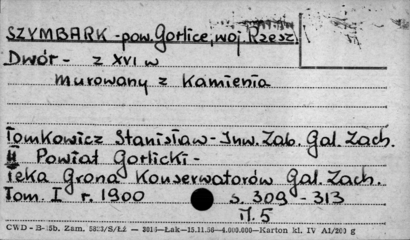 SZYMBARK - pow. Gorlice, woj. Rzesz.
Dwór - z XVI w
murowany z kamienia
Tomkowicz Stanisław - Inw. Zab. Gal. Zach.
II Powiat Gorlicki -
Teka Grona Konserwatorów Gal. Zach.
Tom. I r. 1900 s. 309 - 313
il. 5
CWD - B- 5b. Zam. 5823/S/Łż — 3016—Łak—15.11.56—4.000.000—Karton kl. IV A1/200 g